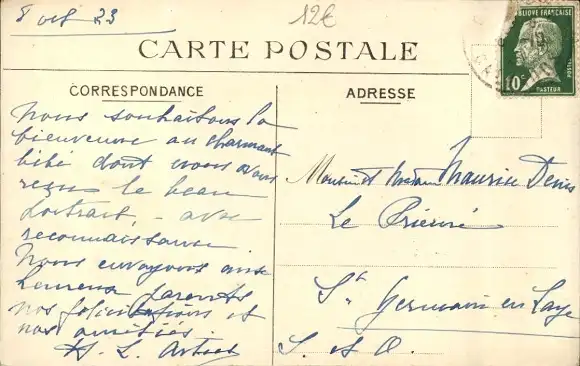 8 oct 23
12€
CARTE POSTALE
RÉPUBLIQUE FRANÇAISE
10c
POSTES
PASTEUR
CORRESPONDANCE
ADRESSE
Nous souhaitons la
bienvenue au charmant
bébé dont nous avons
reçu le beau
portrait, - avec
reconnaissance.
Nous envoyons aux
heureux parents
nos félicitations et
nos amitiés.
Monsieur et Madame Maurice Denis
Le Prieuré
St Germain en Laye
S. et O.